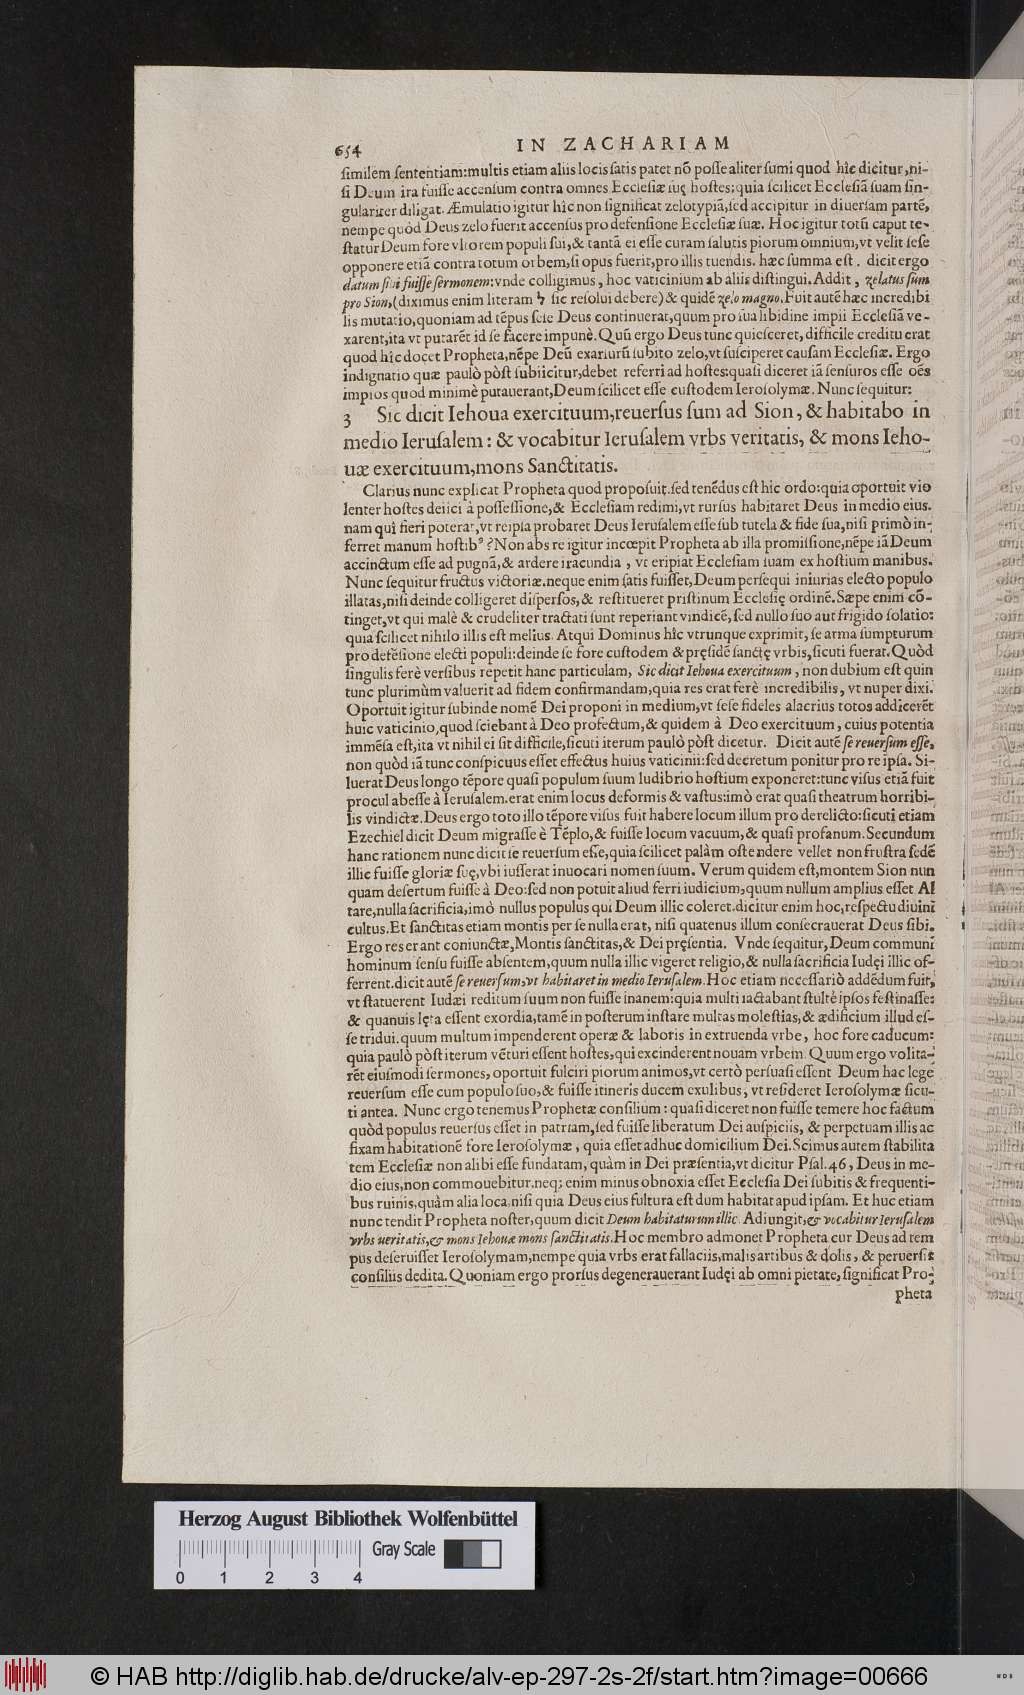 654 IN ZACHARIAM
similem sententiam: multis etiam aliis locis satis patet nõ posse aliter sumi quod hîc dicitur, ni-
si Deum ira fuisse accensum contra omnes Ecclesiæ suę hostes: quia scilicet Ecclesiã suam sin-
gulariter diligat. Æmulatio igitur hîc non significat zelotypiã, sed accipitur in diuersam partẽ,
nempe quòd Deus zelo fuerit accensus pro defensione Ecclesiæ suæ. Hoc igitur totũ caput te-
statur Deum fore vltorem populi sui, & tantã ei esse curam salutis piorum omnium, vt velit sese
opponere etiã contra totum orbem, si opus fuerit, pro illis tuendis. hæc summa est. dicit ergo
datum sibi fuisse sermonem: vnde colligimus, hoc vaticinium ab aliis distingui. Addit, zelatus sum
pro Sion, (diximus enim literam ל sic resolui debere) & quidẽ zelo magno. Fuit autẽ hæc incredibi
lis mutatio, quoniam ad tẽpus sese Deus continuerat, quum pro sua libidine impii Ecclesiã ve-
xarent, ita vt putarẽt id se facere impunè. Quũ ergo Deus tunc quiesceret, difficile creditu erat
quod hîc docet Propheta, nẽpe Deũ exarsurũ subito zelo, vt susciperet causam Ecclesiæ. Ergo
indignatio quæ paulò pòst subiicitur, debet referri ad hostes: quasi diceret iã sensuros esse oẽs
impios quod minimè putauerant, Deum scilicet esse custodem Ierosolymæ. Nunc sequitur:
3 Sic dicit Iehoua exercituum, reuersus sum ad Sion, & habitabo in
medio Ierusalem: & vocabitur Ierusalem vrbs veritatis, & mons Ieho-
uæ exercituum, mons Sanctitatis.
Clarius nunc explicat Propheta quod proposuit. sed tenẽdus est hic ordo: quia oportuit vio
lenter hostes deiici à possessione, & Ecclesiam redimi, vt rursus habitaret Deus in medio eius.
nam quî fieri poterat, vt reipsa probaret Deus Ierusalem esse sub tutela & fide sua, nisi primò in-
ferret manum hostibꝰ? Non abs re igitur incœpit Propheta ab illa promissione, nẽpe iã Deum
accinctum esse ad pugnã, & ardere iracundia, vt eripiat Ecclesiam suam ex hostium manibus.
Nunc sequitur fructus victoriæ. neque enim satis fuisset, Deum persequi iniurias electo populo
illatas, nisi deinde colligeret dispersos, & restitueret pristinum Ecclesię ordinẽ. Sæpe enim cõ-
tinget, vt qui malè & crudeliter tractati sunt reperiant vindicẽ, sed nullo suo aut frigido solatio:
quia scilicet nihilo illis est melius. Atqui Dominus hîc vtrunque exprimit, se arma sumpturum
pro defẽsione electi populi: deinde se fore custodem & pręsidẽ sanctę vrbis, sicuti fuerat. Quòd
singulis ferè versibus repetit hanc particulam, Sic dicit Iehoua exercituum, non dubium est quin
tunc plurimùm valuerit ad fidem confirmandam, quia res erat ferè incredibilis, vt nuper dixi.
Oportuit igitur subinde nomẽ Dei proponi in medium, vt sese fideles alacrius totos addicerẽt
huic vaticinio, quod sciebant à Deo profectum, & quidem à Deo exercituum, cuius potentia
immẽsa est, ita vt nihil ei sit difficile, sicuti iterum paulò pòst dicetur. Dicit autẽ se reuersum esse,
non quòd iã tunc conspicuus esset effectus huius vaticinii: sed decretum ponitur pro re ipsa. Si-
luerat Deus longo tẽpore quasi populum suum ludibrio hostium exponeret: tunc visus etiã fuit
procul abesse à Ierusalem. erat enim locus deformis & vastus: imò erat quasi theatrum horribi-
lis vindictæ. Deus ergo toto illo tẽpore visus fuit habere locum illum pro derelicto: sicuti etiam
Ezechiel dicit Deum migrasse è Tẽplo, & fuisse locum vacuum, & quasi profanum. Secundum
hanc rationem nunc dicit se reuersum esse, quia scilicet palàm ostendere vellet non frustra sedẽ
illic fuisse gloriæ suę, vbi iusserat inuocari nomen suum. Verum quidem est, montem Sion nun
quam desertum fuisse à Deo: sed non potuit aliud ferri iudicium, quum nullum amplius esset Al
tare, nulla sacrificia, imò nullus populus qui Deum illic coleret. dicitur enim hoc, respectu diuini
cultus. Et sanctitas etiam montis per se nulla erat, nisi quatenus illum consecrauerat Deus sibi.
Ergo res erant coniunctæ, Montis sanctitas, & Dei pręsentia. Vnde sequitur, Deum communi
hominum sensu fuisse absentem, quum nulla illic vigeret religio, & nulla sacrificia Iudęi illic of-
ferrent. dicit autẽ se reuersum, vt habitaret in medio Ierusalem. Hoc etiam necessariò addẽdum fuit,
vt statuerent Iudæi reditum suum non fuisse inanem: quia multi iactabant stultè ipsos festinasse:
& quanuis lęta essent exordia, tamẽ in posterum instare multas molestias, & ædificium illud es-
se tridui. quum multum impenderent operæ & laboris in extruenda vrbe, hoc fore caducum:
quia paulò pòst iterum vẽturi essent hostes, qui excinderent nouam vrbem. Quum ergo volita-
rẽt eiusmodi sermones, oportuit fulciri piorum animos, vt certò persuasi essent Deum hac lege
reuersum esse cum populo suo, & fuisse itineris ducem exulibus, vt resideret Ierosolymæ sicu-
ti antea. Nunc ergo tenemus Prophetæ consilium: quasi diceret non fuisse temere hoc factum
quòd populus reuersus esset in patriam, sed fuisse liberatum Dei auspiciis, & perpetuam illis ac
fixam habitationẽ fore Ierosolymæ, quia esset adhuc domicilium Dei. Scimus autem stabilita
tem Ecclesiæ non alibi esse fundatam, quàm in Dei præsentia, vt dicitur Psal. 46, Deus in me-
dio eius, non commouebitur. neq; enim minus obnoxia esset Ecclesia Dei subitis & frequenti-
bus ruinis, quàm alia loca, nisi quia Deus eius fultura est dum habitat apud ipsam. Et huc etiam
nunc tendit Propheta noster, quum dicit Deum habitaturum illic. Adiungit, & vocabitur Ierusalem
vrbs ueritatis, & mons Iehouæ mons sanctitatis. Hoc membro admonet Propheta cur Deus ad tem
pus deseruisset Ierosolymam, nempe quia vrbs erat fallaciis, malis artibus & dolis, & peruersis
consiliis dedita. Quoniam ergo prorsus degenerauerant Iudęi ab omni pietate, significat Pro-
pheta
Herzog August Bibliothek Wolfenbüttel
Gray Scale
0 1 2 3 4
© HAB http://diglib.hab.de/drucke/alv-ep-297-2s-2f/start.htm?image=00666